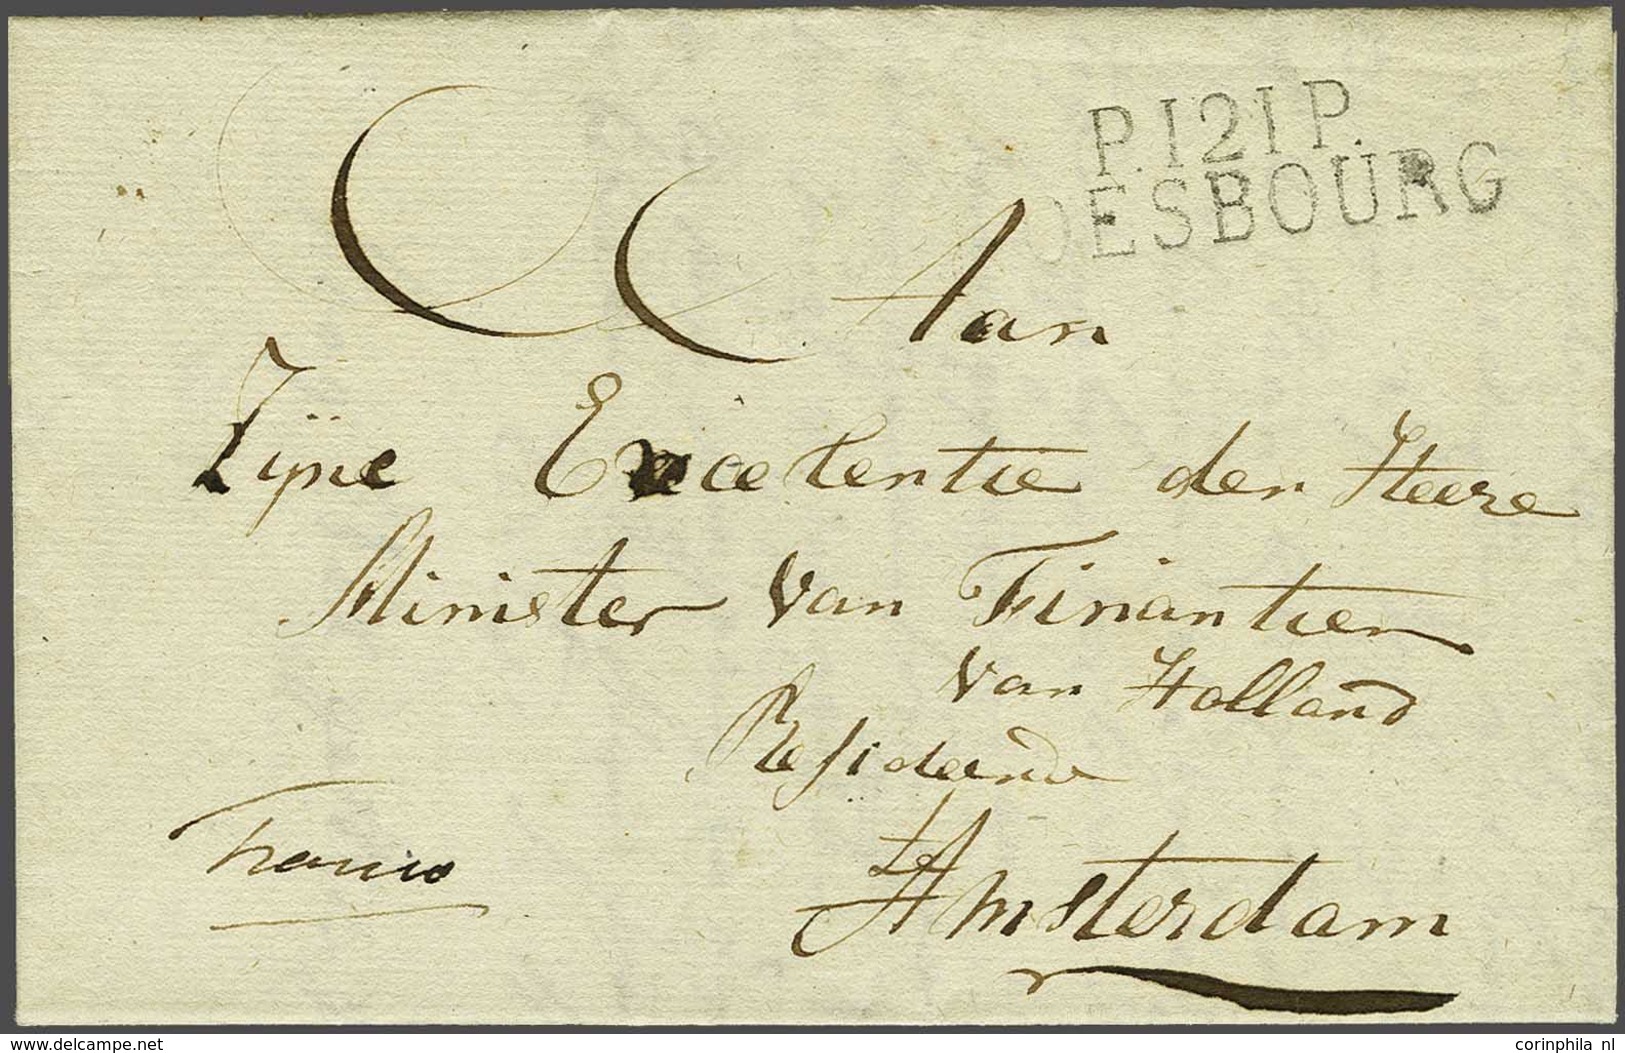 P.121P.
DOESBOURG
Aan
Zijne Excelentie den Heere
Minister van Finantien
van Holland
Resideerende
te
Amsterdam
Franco
www.delcampe.net
corinphila nl